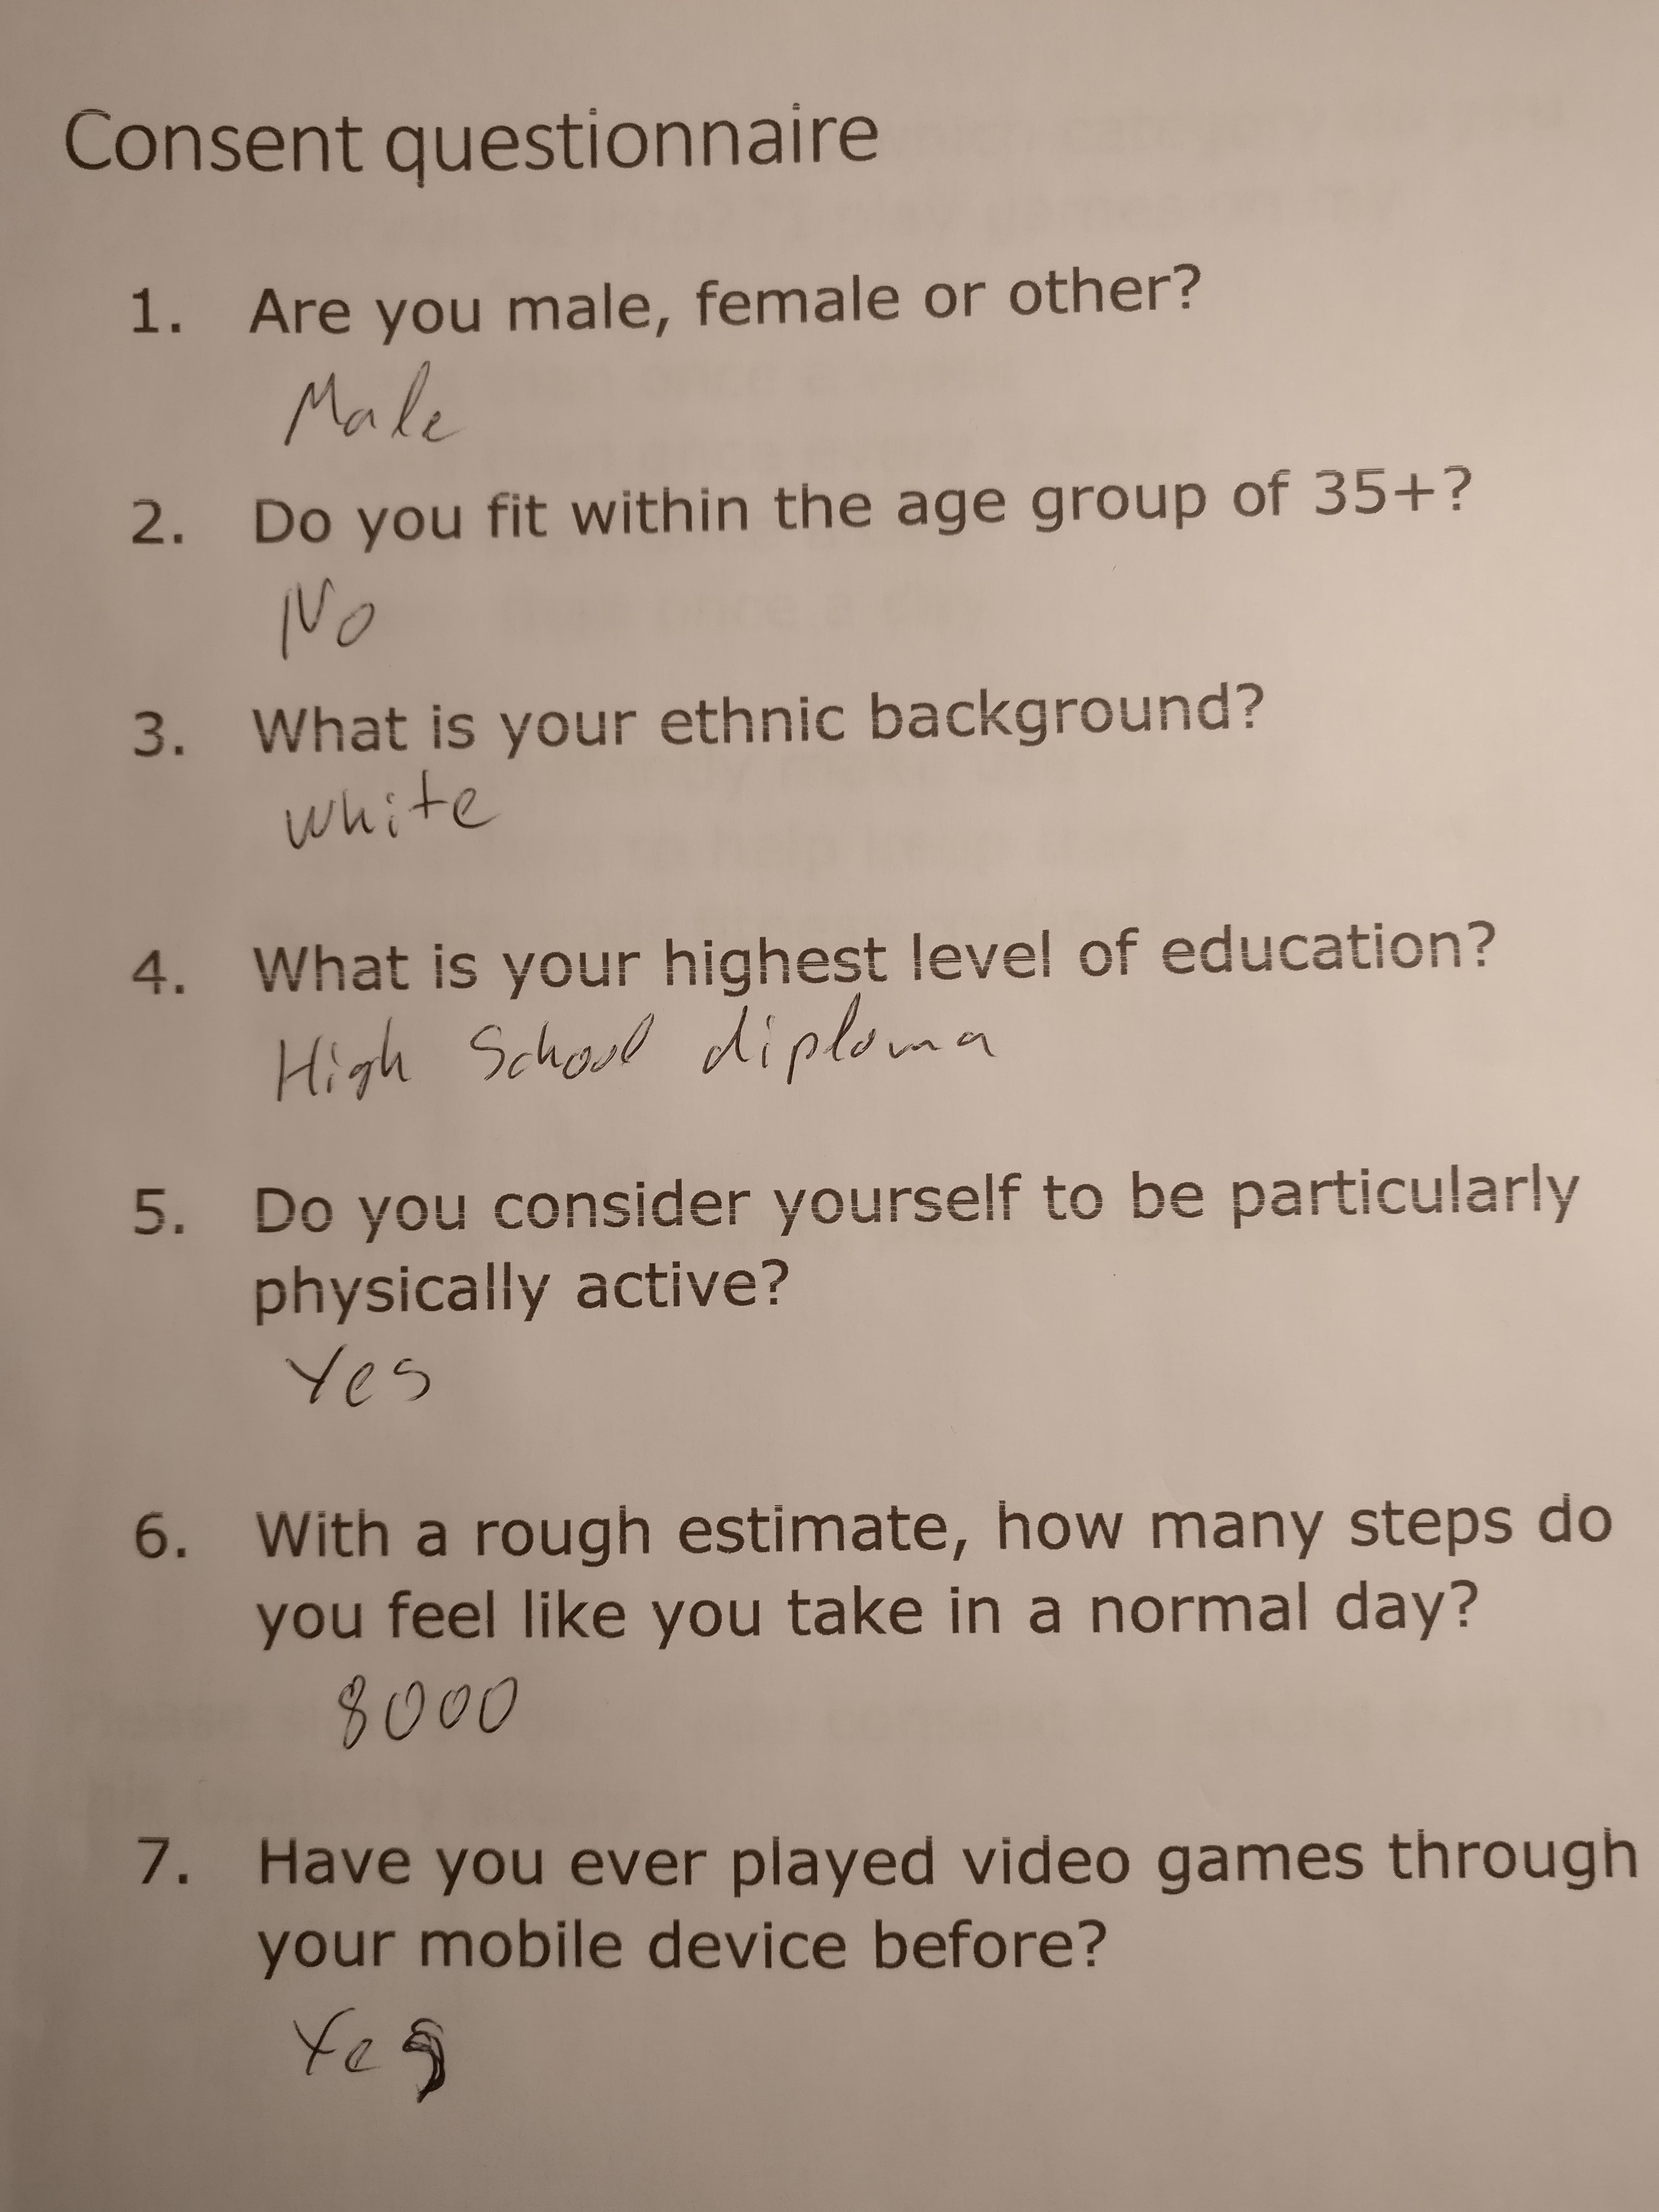 Consent questionnaire
1. Are you male, female or other?
Male
2. Do you fit within the age group of 35+?
No
3. What is your ethnic background?
white
4. What is your highest level of education?
High School diploma
5. Do you consider yourself to be particularly
physically active?
Yes
6. With a rough estimate, how many steps do
you feel like you take in a normal day?
8000
7. Have you ever played video games through
your mobile device before?
Yes